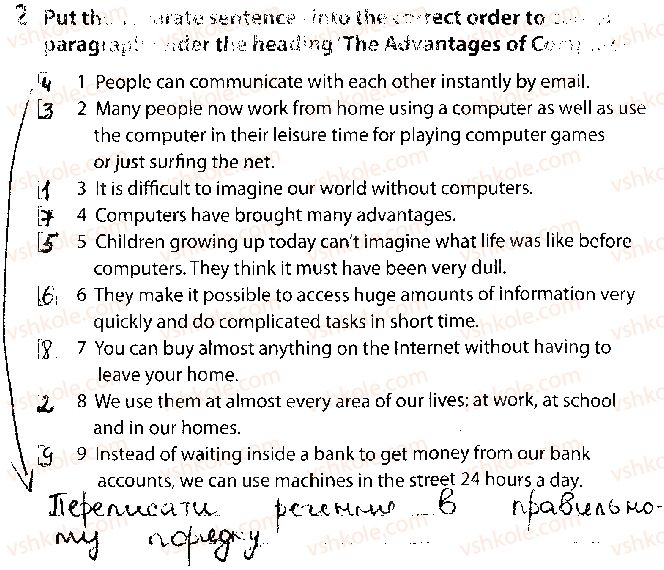 2 Put the separate sentences into the correct order to
paragraph under the heading 'The Advantages of
4 1 People can communicate with each other instantly by email.
3 2 Many people now work from home using a computer as well as use
the computer in their leisure time for playing computer games
or just surfing the net.
1 3 It is difficult to imagine our world without computers.
7 4 Computers have brought many advantages.
5 5 Children growing up today can't imagine what life was like before
computers. They think it must have been very dull.
6 6 They make it possible to access huge amounts of information very
quickly and do complicated tasks in short time.
8 7 You can buy almost anything on the Internet without having to
leave your home.
2 8 We use them at almost every area of our lives; at work, at school
and in our homes.
9 9 Instead of waiting inside a bank to get money from our bank
accounts, we can use machines in the street 24 hours a day.
Переписати речення в правильно-
му порядку
vshkole.com